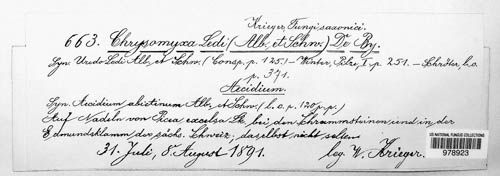 Krieger, Fungi saxonici.
663. Chrysomyxa Ledi (Alb. et Schw.) De By.
Syn. Uredo Ledi Alb. et Schw. (Consp. p. 125.) — Winter, Pilze, I. p. 251. — Schröter, l. c.
p. 371.
Aecidium.
Syn. Aecidium abietinum Alb. et Schw. (l. c. p. 120 p. p.)
Auf Nadeln von Picea excelsa Lk. bei den Schrammsteinen und in der
Edmundsklamm der sächs. Schweiz, daselbst nicht selten
31. Juli, 8. August 1891. leg. W. Krieger.
US NATIONAL FUNGUS COLLECTIONS
978923